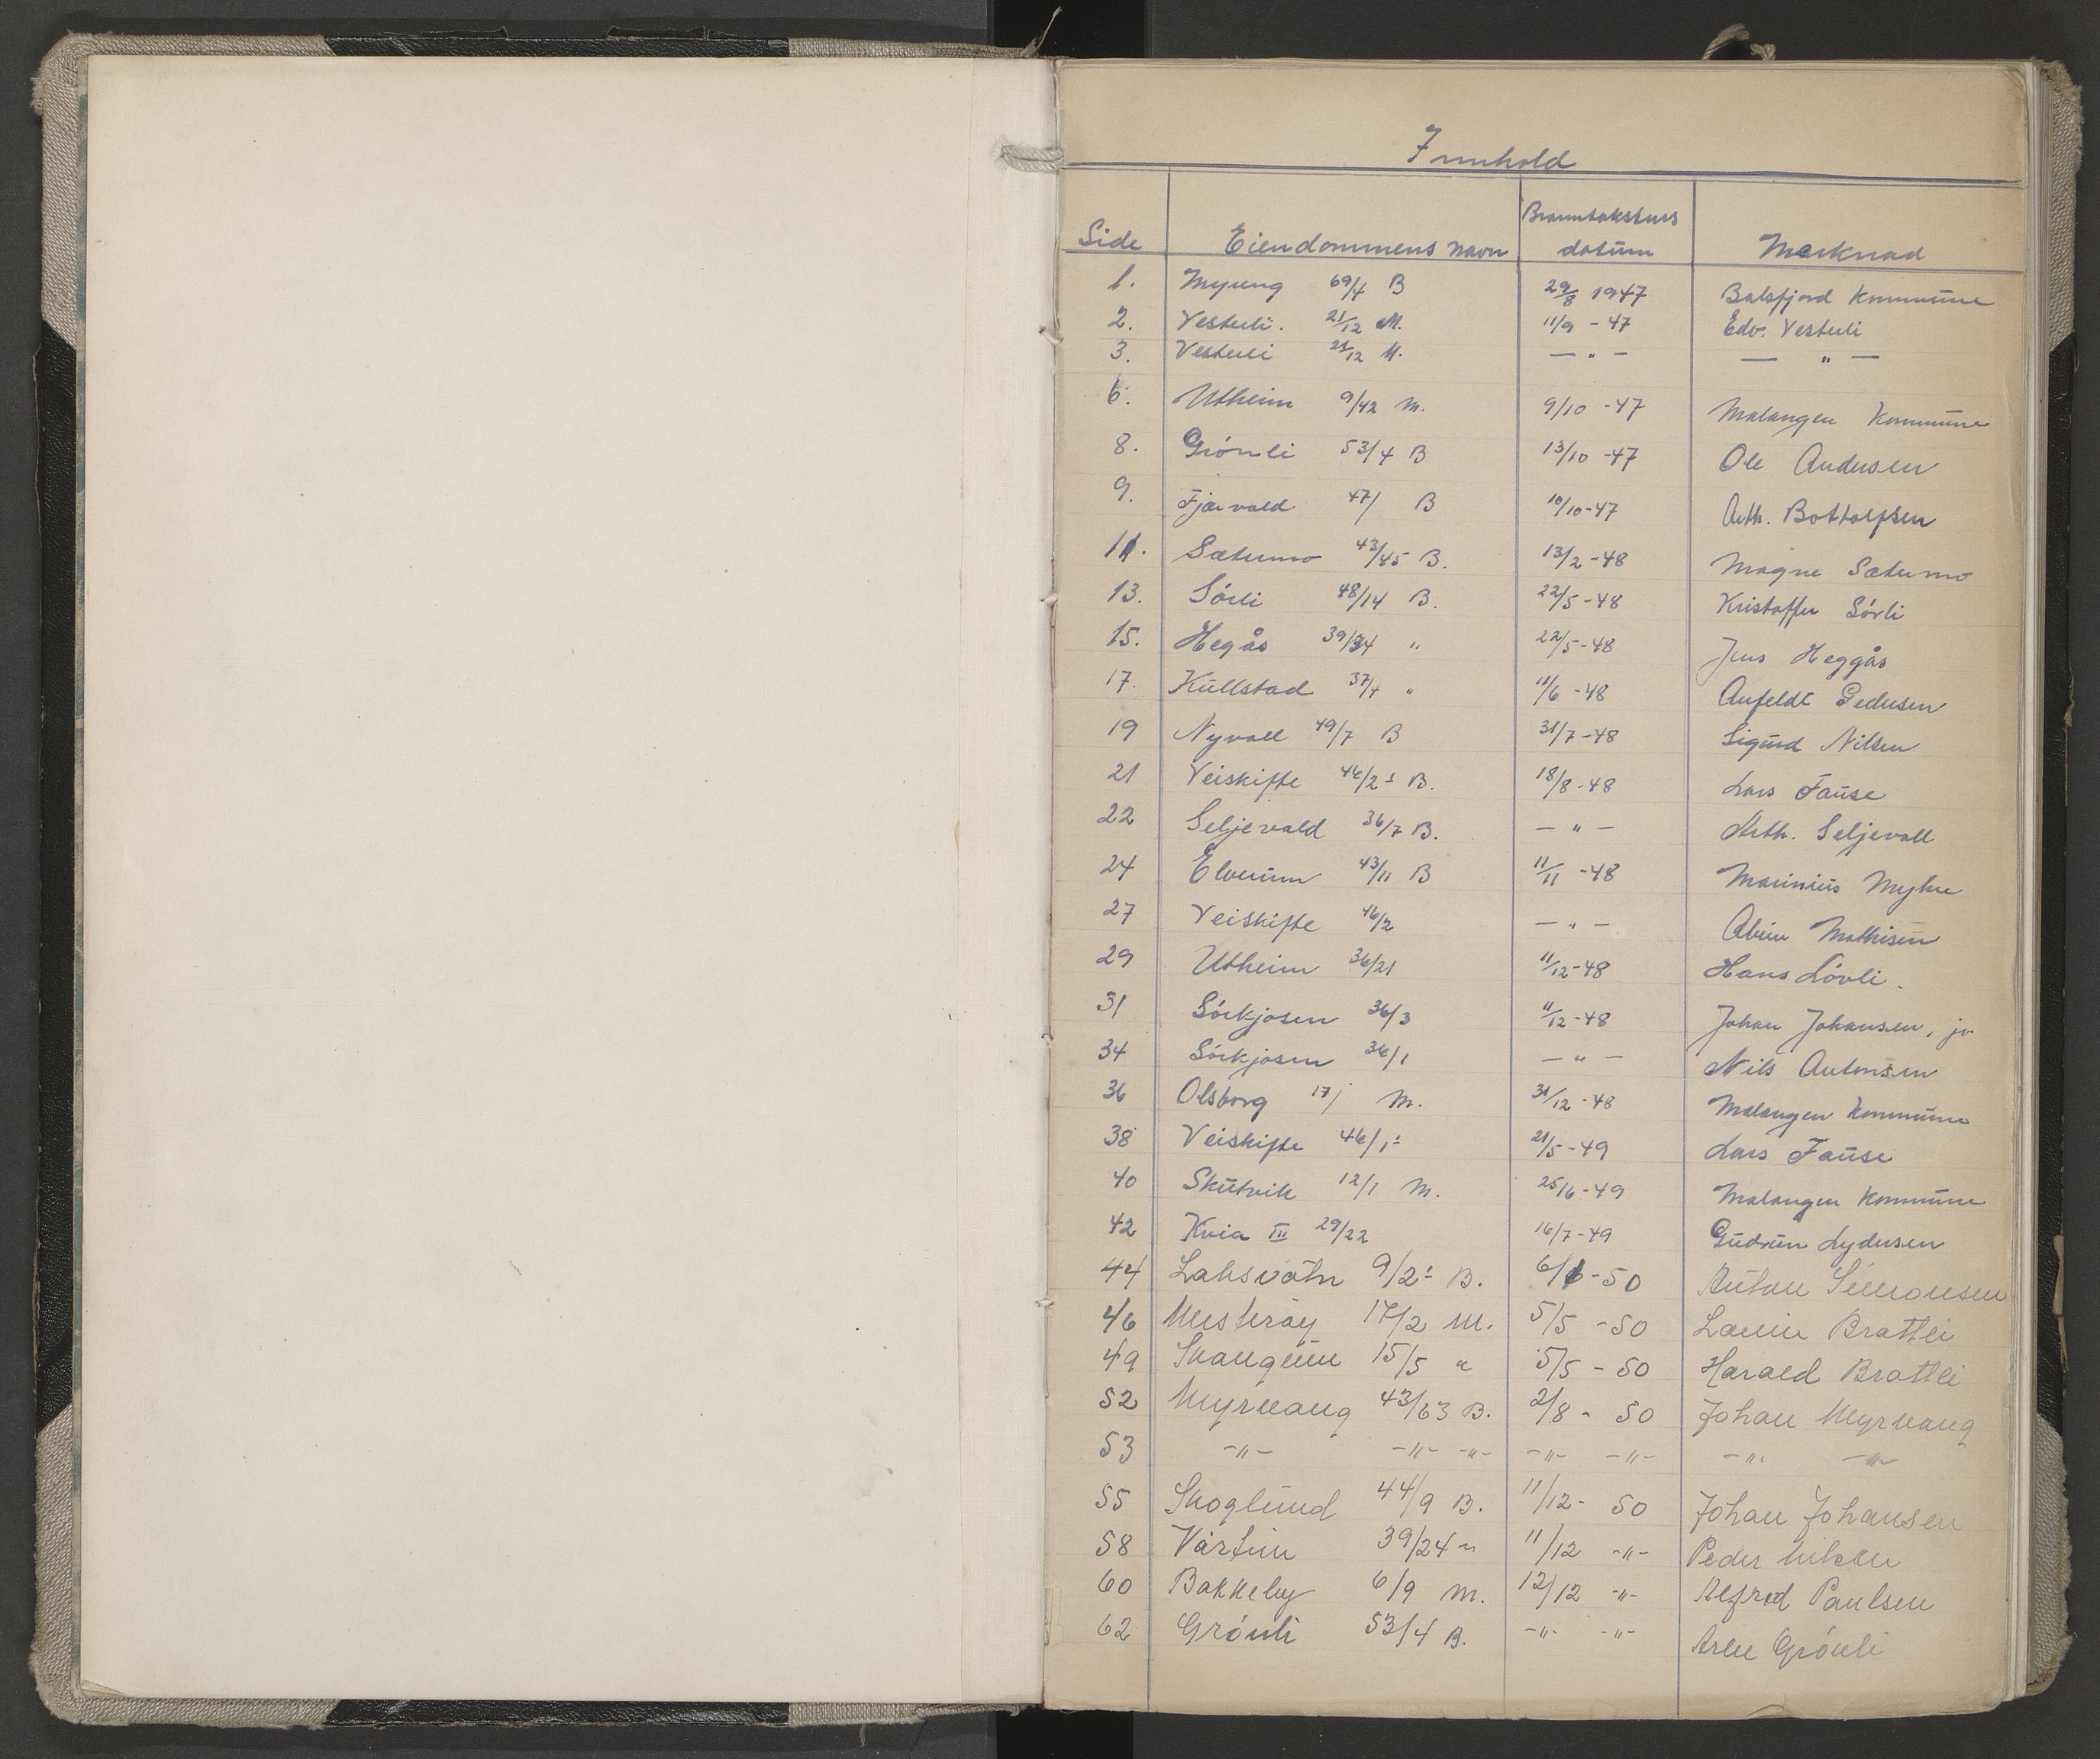 Innhold
Side Eiendommens navn Branntakstens datum Merknad
1. Myreng 69/4 B 29/8 1947 Balsfjord Kommune
2. Vesterli. 21/12 M. 11/9 - 47 Edv. Vesterli
3. Vesterli 21/12 M. — " — — " —
6. Utheim 9/42 M. 9/10 - 47 Malangen Kommune
8. Grónli 53/4 B 13/10 - 47 Ole Andersen
9. Fjærvold 47/ B 10/10 - 47 Arth. Bottolfsen
11. Sætermo 43/45 B. 13/2 - 48 Magne Sætermo
13. Sórli 48/14 B. 22/5 - 48 Kristoffer Sórli
15. Hegås 39/34 " 22/5 - 48 Jens Heggås
17. Kullstad 37/4 " 11/6 - 48 Anfeldt Pedersen
19 Nyvoll 49/7 B 31/7 - 48 Sigurd Nilsen
21 Veiskifte 46/2 B. 18/8 - 48 Lars Fause
22 Seljevold 36/7 B. — " — Arth. Seljevoll
24 Elverum 43/11 B 11/11 - 48 Marinius Myhre
27 Veiskifte 46/2 — " — Mathisen
29 Utheim 36/21 11/12 - 48 Hans Lóvli.
31 Sórkjosen 36/3 11/12 - 48 Johan Johansen, jr.
34 Sórkjosen 36/1 — " — Nils Antonsen
36 Olsborg 17/ M. 31/12 - 48 Malangen Kommune
38 Veiskifte 46/1 21/5 - 49 Lars Fause
40 Skutvik 12/1 M. 25/6 - 49 Malangen Kommune
42 Kvia III 29/22 16/7 - 49 Gudrun Lydersen
44 Laksvatn 9/2 B. 6/6 - 50 Anton Simonsen
46 Mestерöy 17/2 M. 5/5 - 50 Brattli
49 15/5 " 5/5 - 50 Harald Brattli
52 Myrvang 43/63 B. 2/8 - 50 Johan Myrvang
53 -"- -"- -"- -"- -"- -"- -"-
55 Skoglund 44/9 B. 11/12 - 50 Johan Johansen
58 Vårtun 39/24 " 11/12 -"- Peder Nilsen
60 Bakkeby 6/9 M. 12/12 -"- Alfred Paulsen
62 Grónli 53/4 B. -"- -"- Arne Grónli